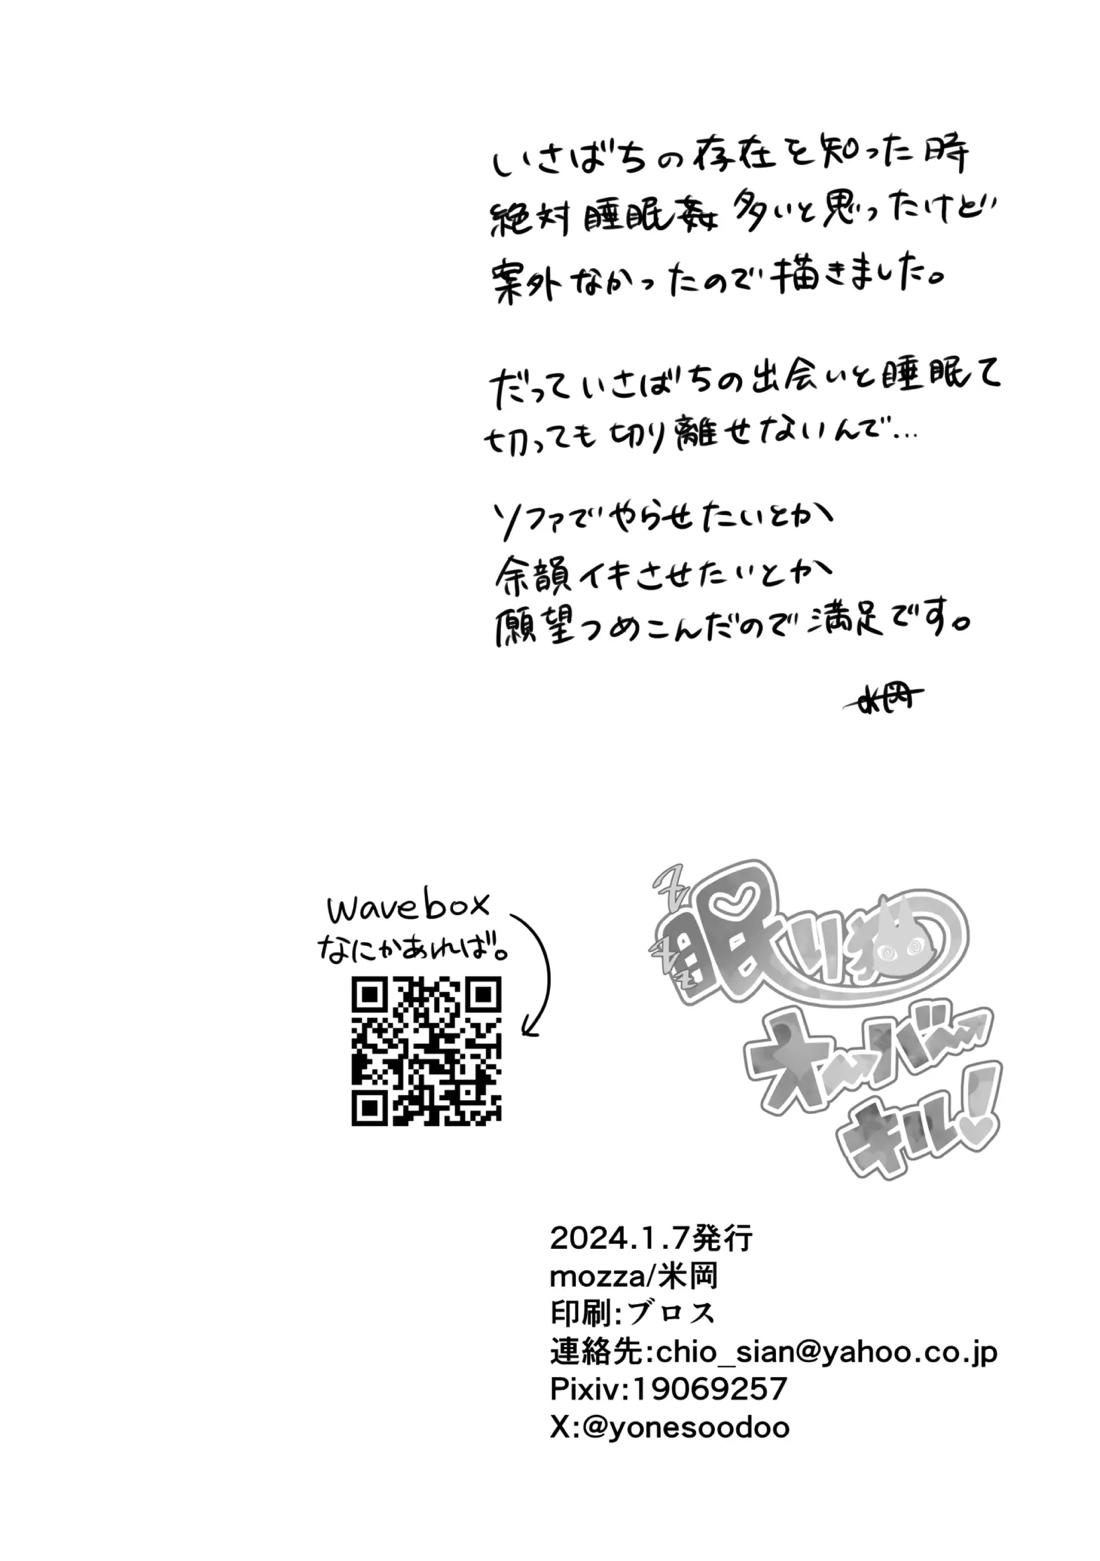 いさばちの存在を知った時
絶対睡眠姦多いと思ったけど
案外なかったので描きました。
だっていさばちの出会いと睡眠て
切っても切り離せないんで…
ソファでやらせたいとか
余韻イキさせたいとか
願望つめこんだので満足です。
米岡
wavebox
なにかあれば。
眠り猫
オーバー
キル!
2024.1.7発行
mozza/米岡
印刷:ブロス
連絡先:chio_sian@yahoo.co.jp
Pixiv:19069257
X:@yonesoodoo